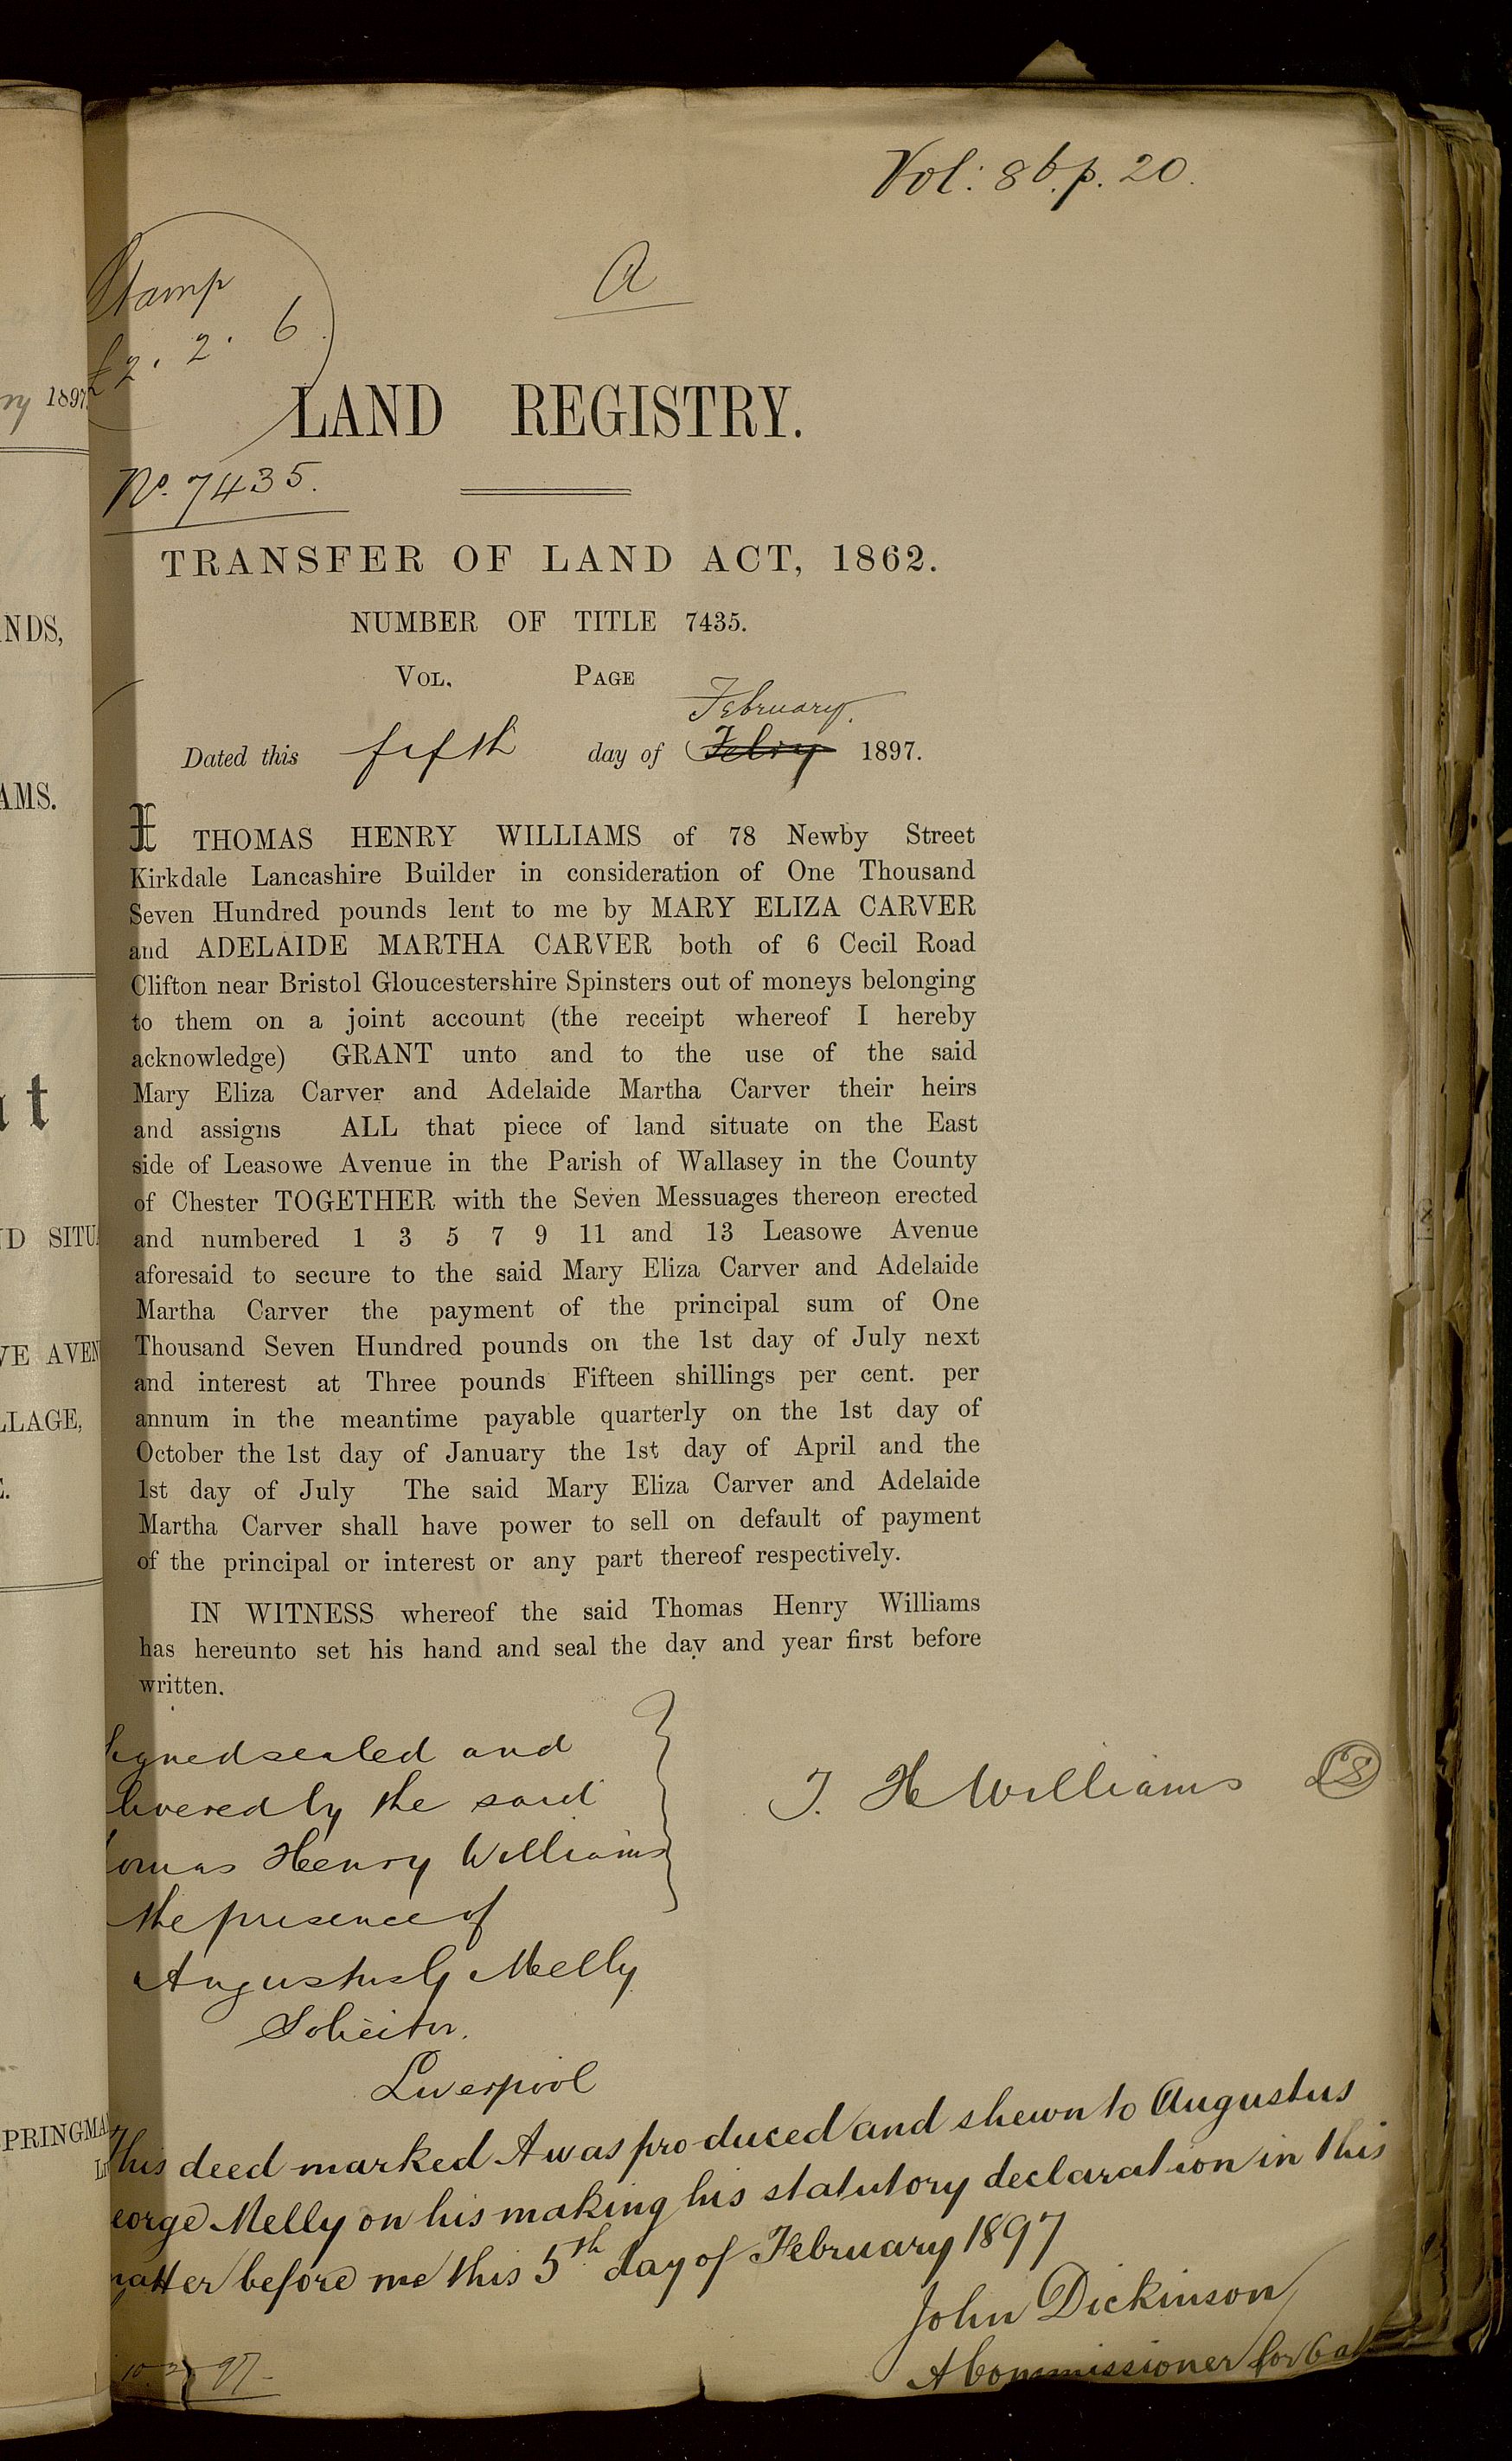 Vol: 86. p. 20.
A
Stamp
£2. 2. 6
ry 1897.
LAND REGISTRY.
No. 7435.
TRANSFER OF LAND ACT, 1862.
NUMBER OF TITLE 7435.
VOL. PAGE
February.
Dated this fifth day of Febry 1897.
I THOMAS HENRY WILLIAMS of 78 Newby Street
Kirkdale Lancashire Builder in consideration of One Thousand
Seven Hundred pounds lent to me by MARY ELIZA CARVER
and ADELAIDE MARTHA CARVER both of 6 Cecil Road
Clifton near Bristol Gloucestershire Spinsters out of moneys belonging
to them on a joint account (the receipt whereof I hereby
acknowledge) GRANT unto and to the use of the said
Mary Eliza Carver and Adelaide Martha Carver their heirs
and assigns ALL that piece of land situate on the East
side of Leasowe Avenue in the Parish of Wallasey in the County
of Chester TOGETHER with the Seven Messuages thereon erected
and numbered 1 3 5 7 9 11 and 13 Leasowe Avenue
aforesaid to secure to the said Mary Eliza Carver and Adelaide
Martha Carver the payment of the principal sum of One
Thousand Seven Hundred pounds on the 1st day of July next
and interest at Three pounds Fifteen shillings per cent. per
annum in the meantime payable quarterly on the 1st day of
October the 1st day of January the 1st day of April and the
1st day of July The said Mary Eliza Carver and Adelaide
Martha Carver shall have power to sell on default of payment
of the principal or interest or any part thereof respectively.
IN WITNESS whereof the said Thomas Henry Williams
has hereunto set his hand and seal the day and year first before
written.
Signed sealed and
livered by the said
omas Henry Williams
the presence of
Augustus G Melly
Solicitor.
Liverpool
T. H Williams LS
This deed marked A was produced and shewn to Augustus
eorge Melly on his making his statutory declaration in this
matter before me this 5th day of February 1897
John Dickinson
A Commissioner for Oat
10 2 97
NDS,
AMS.
t
D SITU
VE AVEN
LLAGE,
E.
SPRINGMA